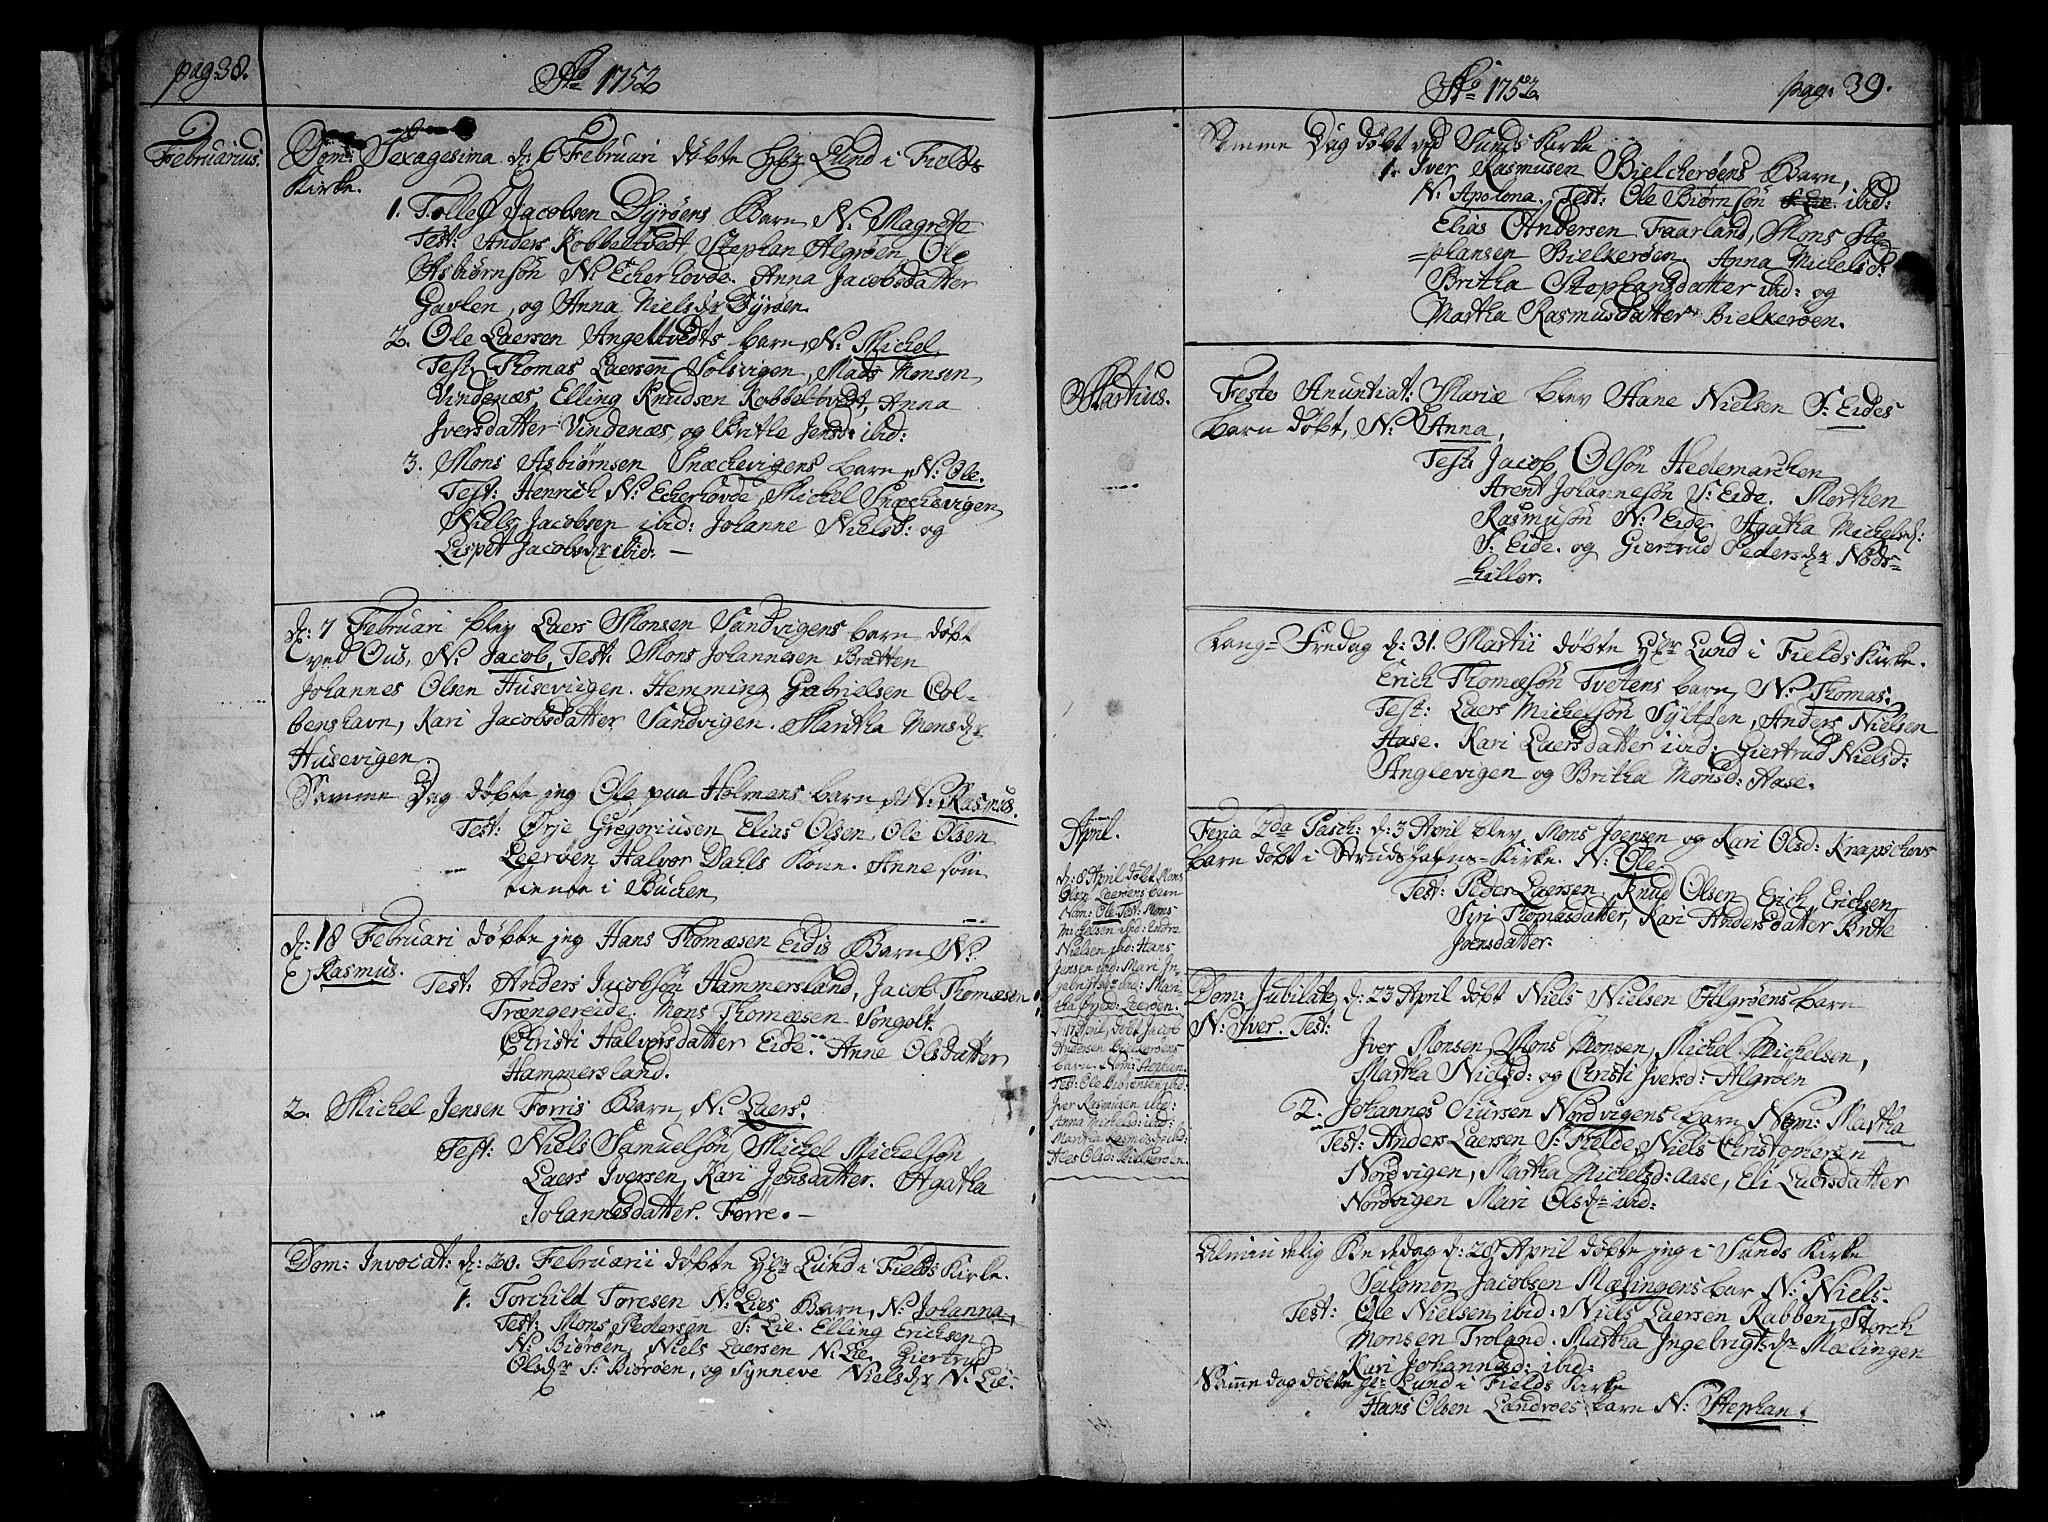 pag: 38.
Ao 1752
Februarius.
Dom: Sexagesima d: 6 Februari döbte Hr Lund i Fields
Kirke.
1. Tollef Jacobsen Dyröens Barn, N: Magrete
Test: Anders Kobbeltvedt, Stephan Algröen, Ole
Asbiörnsön N: Echerhovde. Anna Jacobsdatter
Gavlen, og Anna Nielsdr Dyröen.
2. Ole Laersen Angeltvedts barn, N: Michel,
Test: Thomas Laersen Solsvigen, Mads Monsen
Vindenæs, Elling Knudsen Kobbeltvedt, Anna
Iversdatter Vindenæs, og Britle Jensd: ibid:
3. Mons Asbiörnsen Snechevigens barn, N: Ole.
Test: Henrich N: Echerhovde, Michel Snechevigen,
Niels Jacobsen ibid: Johanne Nielsd: og
Lispet Jacobsdr ibid: —
d: 7 Februari blev Laers Monsen Sandvigens barn döbt
ved Ous, N: Jacob, Test: Mons Johannesen Bratten
Johannes Olsen Husevigen. Hemming Gabrielsen Col-
benshavn, Kari Jacobsdatter Sandvigen. Martha Monsdr
Husevigen.
Samme Dag döbte jeg Ole paa Holmens barn, N: Rasmus.
Test: Örje Gregoriusen Elias Olsen, Ole Olsen
Leeröen, Halvor Dahls Kone. Anne som
tiente i Buchen
d: 18 Februari döbte jeg Hans Thomæsen Eidis Barn, N:
Rasmus.
Test: Anders Jacobsön Hammersland, Jacob Thomæsen
Trængereide. Mons Thomæsen Songolt.
Christi Halvorsdatter Eide. Anne Olsdatter,
Hammersland.
2. Michel Jensen Forris Barn, N: Laers.
Test: Niels Samuelsön, Michel Michelsön
Laers Iversen, Kari Jensdatter. Agatha
Johannesdatter. Förre. —
Dom: Invocat: d: 20. Februarii döbte Hr Lund i Fields Kirke.
1. Torchild Toresen N: Lies Barn, N: Johanna,
Test: Mons Pedersen S: Lie. Elling Erichsen
N: Biöröen, Niels Laersen N: Lie, Giertrud
Olsdr S: Biöröen, og Synneve Nielsdr N: Lie.
Ao 1752.
pag: 39.
Samme Dag döbt ved Sunds Kirke
1. Iver Rasmusen Bielcheröens Barn,
N: Apolona. Test: Ole Biörnsön ibid:
Elias Andersen Faarland, Mons Ste-
phansen Bielkeröen. Anna Michelsd:
Britha Stephansdatter ibid: og
Martha Rasmusdatter Bielkeröen.
Martius.
Festo Anuntiat: Mariæ blev Hane Nielsen S: Eides
barn döbt, N: Anna,
Test: Jacob Olsön Hedemarchen
Arent Johannesön S: Eide. Morthen
Rasmusön N: Eide, Agatha Michelsd:
S: Eide. og Giertrud Pedersdr Nöds-
hiller.
Lang=Fredag d: 31. Martii döbte Hr Lund i Fields Kirke.
Erich Thomæsön Tvetens barn, N: Thomas.
Test: Laers Michelsön Syltöen, Anders Nielsen
Aase. Kari Laersdatter ibid: Giertrud Nielsd:
Anglevigen og Britha Monsd: Aase.
April.
Feria 2da Pasch: d: 3 April blev Mons Joensen og Kari Olsd: Knapschovs
barn döbt i Strudshafns-Kirke. N: Ole
Test: Peder Laersen, Knud Olsen Erich Erichsen,
Siri Thomasdatter, Kari Andersdatter Britle
Joensdatter.
d: 8 April döbt Mons
Olsen Leeröens barn
Nom: Ole Test: Mons
Michelsen ibid: Endre
Nielsen ibid: Hans
Jensen ibid: Mari In-
gebrigtsdr ibid: Mar-
tha Leeröen.
April, döbt Jacob
Andersen Bielkeröens
barn. Nom: Stephan.
Test: Ole Biörensen ibid.
Iver Rasmusen ibid:
Anna Michelsd: ibid:
Martha Rasmusdr ibid:
Ales Olsd: Bielkeröen.
Dom: Jubilate d: 23 April döbt Niels Nielsen Algröens barn
N: Iver. Test:
Iver Monsen, Mons Monsen, Michel Michelsen,
Martha Nielsd: og Christi Iversd: Algröen
2. Johannes Siursen Nordvigens barn Nom: Martha
Test: Anders Laersen S: Thelde, Niels Christophersen
Nordvigen, Martha Michelsd: Aase, Eli Laersdatter
Nordvigen Mari Olsdr ibid:
Almindelig Bededag d: 28 April döbte jeg i Sunds Kirke
Salomon Jacobsen Mælingens bar N: Niels.
Test: Ole Nielsen ibid: Niels Laersen Rabben, Storch
Monsen Troland. Martha Ingebrigtsdr Mælingen
Kari Johannesd: ibid:
Samme dag döbte Hr Lund i Fields Kirke
Hans Olsen Landroes barn N: Stephan.